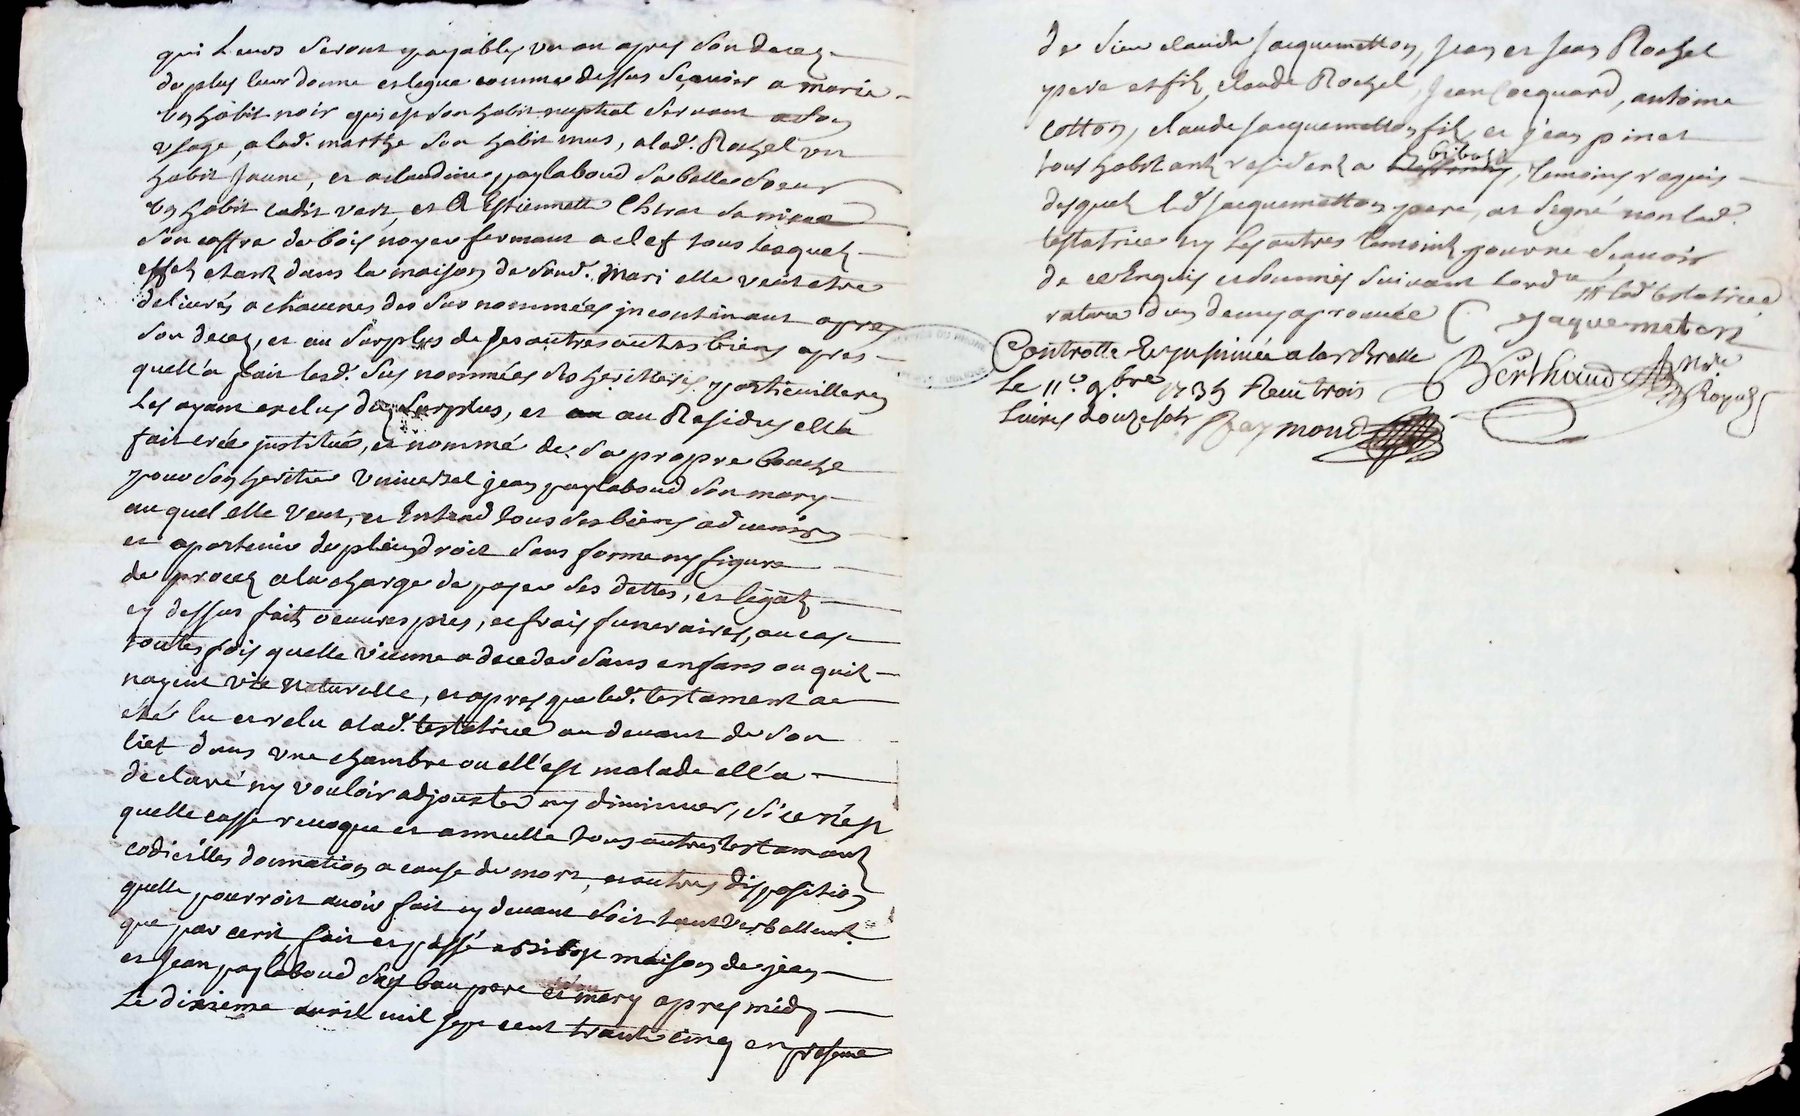 qui Leurs seront payables un an apres son decez
de plus leur donne et legue comme dessus sçavoir a marie
un habit noir qui est son habit nuptial servant a son
usage, a lad. marthe son habit mus, a lad. Rochel un
habit Jaune, et a claudine paylaboud sa belle soeur
un habit cadis vert, et A Estiennette Chirat sa niece
son coffre de bois noyer fermant a clef tous lesquels
effets etant dans la maison de sond. Mari elle veut etre
delivrés a chacunes des sus nommées incontinant apres
son decez, et au surplus de ses autres autres biens apres
quell'a fait lesd. sus nommées ses heritieres particuilleres
Les ayant exclus du surplus, et au Residus ell'a
fait créé institué, et nommé de sa propre bouche
pour son heritier Universel jean paylaboud son mary
au quel elle veut, et Entend tous ses biens advenir
et apartenir de plein droit sans forme ny figure
de procez a la charge de payer ses dettes, et legats
cy dessus faits oeuvres pies, et frais funeraires, au cas
toutes fois quelle vienne a deceder sans enfans ou quils
nayent vie naturelle, et apres que led. testament a
eté lu et relu a lad. testatrice au devant de son
lict dans une chambre ou ell'est malade ell'a
declaré ny vouloir adjouxter ny diminuer, si ce n'est
quelle casse revoque et annulle tous autres testaments
codicilles donnation a cause de mort, et autres disposition
quelle pourroit avoir fait cy devant soit tant verballemt.
que par ecrit, fait et passé a Bibost maison de jean
et Jean paylaboud ses beau pere et mary apres midy
Le dixieme avril mil sept cent trante cinq en presence
de sieur claude Jacquemetton, Jean et Jean Rochel
pere et fils, claude Rochel, Jean Cocquard, antoine
cotton, claude Jacquemetton fils et jean pinet
tous habitants residents a Bibost, temoins requis
desquels led. Jacquemetton pere, at signé non lad.
testatrice ny Les autres temoins pour ne scavoir
de ce Enquis et sommés suivant lord.
rature dun demy aprouvée lad. testatrice
Jaquemeton
Controllé et insinué a larbrelle
Le 11e 9bre 1735 Receu trois
livres douze sols Raymond
Berthaud Nre Royal